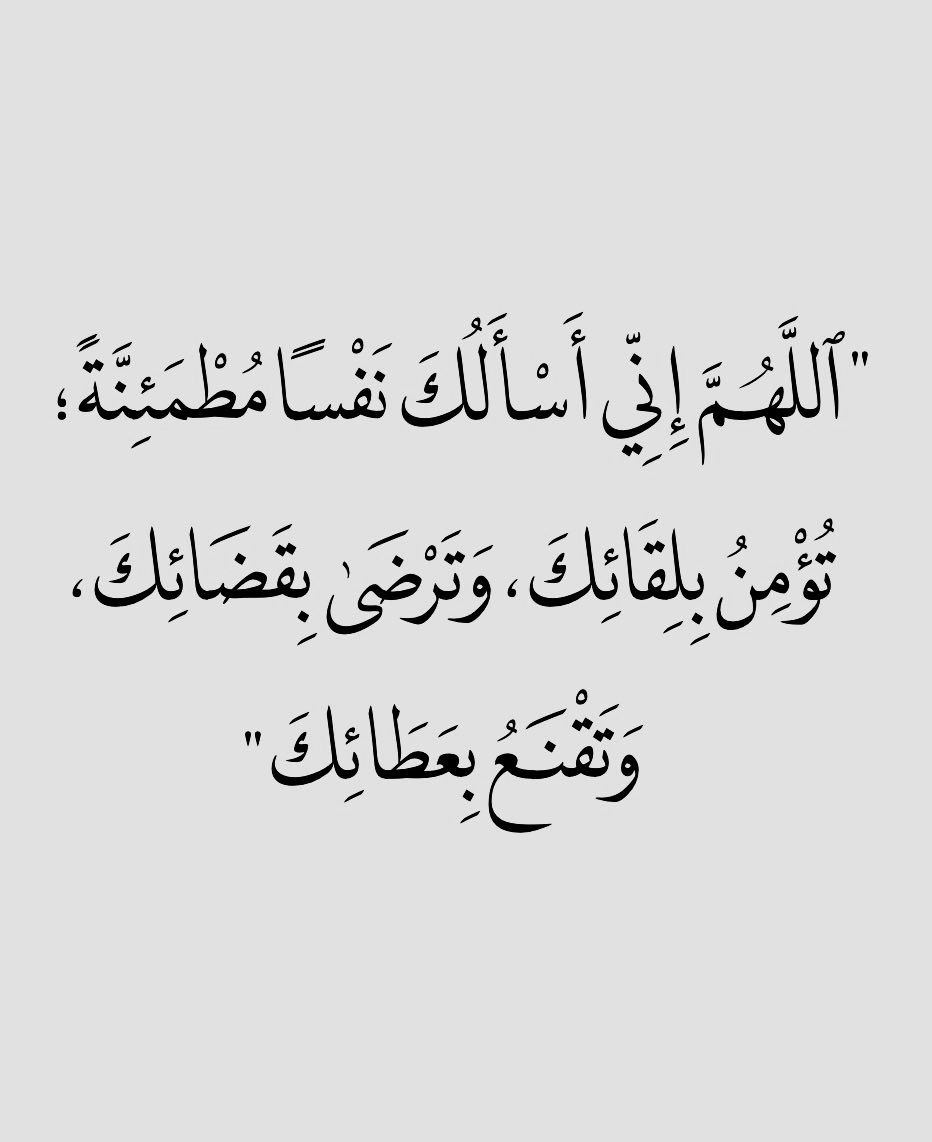 "ٱللَّهُمَّ إِنِّي أَسْأَلُكَ نَفْسًا مُطْمَئِنَّةً؛
تُؤْمِنُ بِلِقَائِكَ، وَتَرْضَىٰ بِقَضَائِكَ،
وَتَقْنَعُ بِعَطَائِكَ"